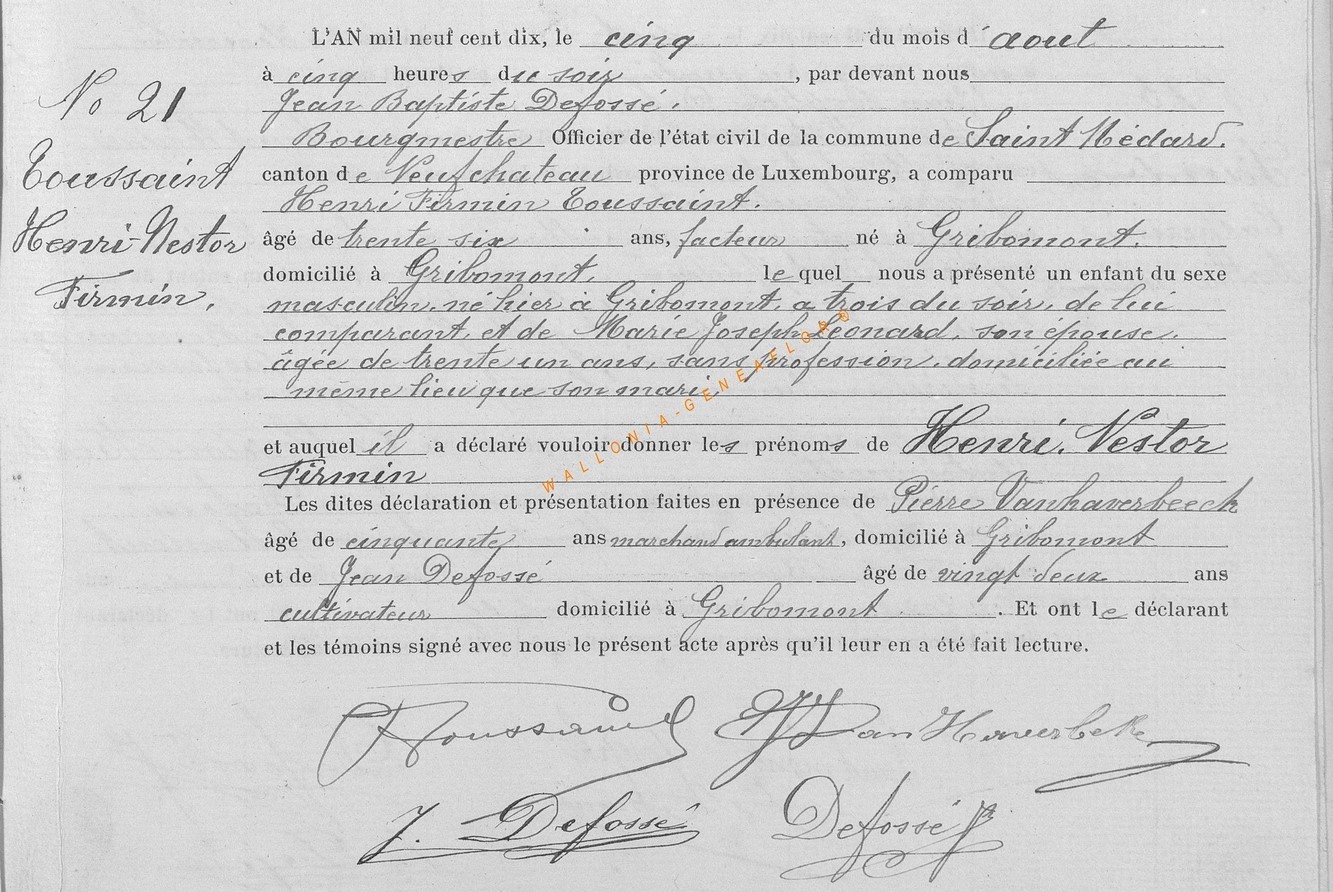 L'AN mil neuf cent dix, le cinq du mois d'aout
à cinq heures du soir, par devant nous
Jean Baptiste Defossé.
Bourgmestre Officier de l'état civil de la commune de Saint Médard.
canton de Neufchateau province de Luxembourg, a comparu
Henri Firmin Toussaint.
âgé de trente six ans, facteur né à Gribomont.
domicilié à Gribomont. lequel nous a présenté un enfant du sexe
masculin, né hier à Gribomont, a trois du soir, de lui
comparant, et de Marie Joseph Léonard, son épouse,
âgée de trente un ans, sans profession, domiciliée au
même lieu que son mari.
et auquel il a déclaré vouloir donner les prénoms de Henri, Nestor
Firmin
Les dites déclaration et présentation faites en présence de Pierre Vanhaverbeeck
âgé de cinquante ans marchand ambulant, domicilié à Gribomont
et de Jean Defossé âgé de vingt deux ans
cultivateur domicilié à Gribomont. Et ont le déclarant
et les témoins signé avec nous le présent acte après qu'il leur en a été fait lecture.
No 21
Toussaint
Henri Nestor
Firmin.
WALLONIA-GENEAFLOR©
Toussaint Van Haverbeke
J. Defossé Defossé JB